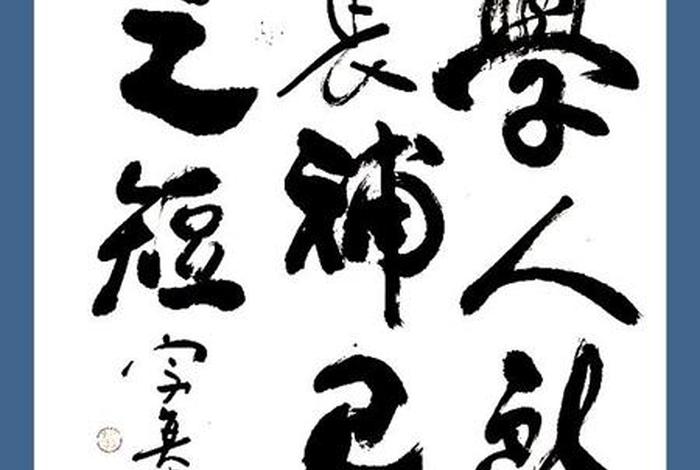 學人
長補己
之短